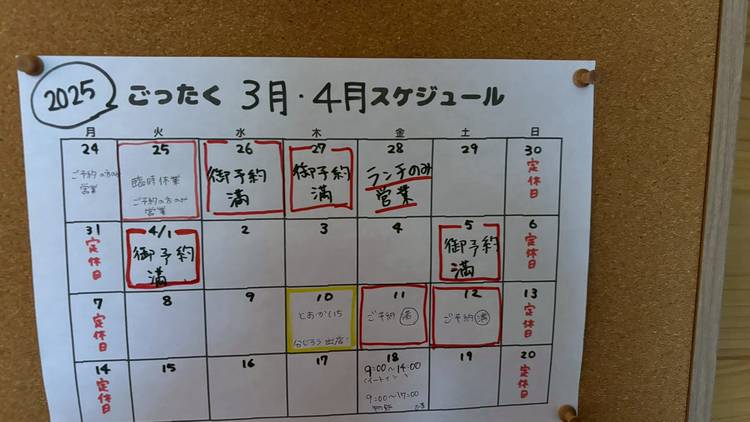 2025 ごったく 3月・4月スケジュール
月 火 水 木 金 土 日
24 25 26 27 28 29 30
ご予約の方のみ
営業
臨時休業
ご予約の方のみ
営業
御予約
満
御予約
満
ランチのみ
営業
定休日
31 4/1 2 3 4 5 6
定休日
御予約
満
御予約
満
定休日
7 8 9 10 11 12 13
定休日
とおかいち
出店!
ご予約 満
ご予約 満
定休日
14 15 16 17 18 19 20
定休日
9:00〜14:00
9:00〜17:00
定休日